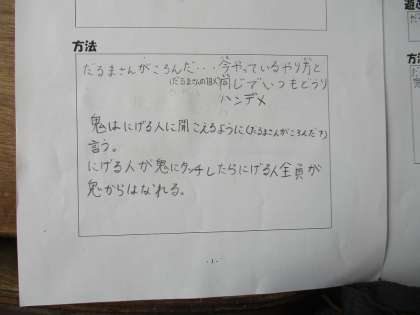 方法
だるまさんがころんだ・・・今やっているやり方と
同じでいつもどうり
ハンデメ
鬼はにげる人に聞こえるように(だるまさんがころんだ?)
言う。
にげる人が鬼にタッチしたらにげる人全員が
鬼からはなれる。
遊
方